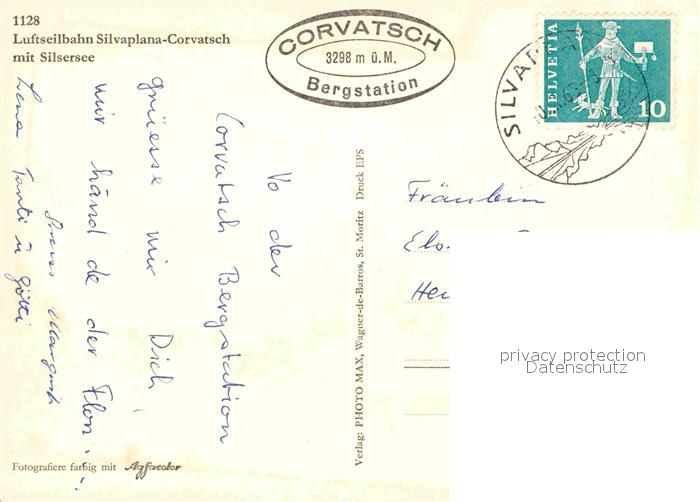 1128
Luftseilbahn Silvaplana-Corvatsch
mit Silsersee
CORVATSCH
3298 m ü. M.
Bergstation
HELVETIA
10
SILVAP
Vo der
Corvatsch Bergstation
grüesse mir Dich,
mir händ de der Flon
Lena Tanti u Götti
Verlag: PHOTO MAX, Wagner-de-Barros, St. Moritz Druck EPS
Fräulein
Els.
Hei
privacy protection
Datenschutz
Fotografiere farbig mit Agfacolor